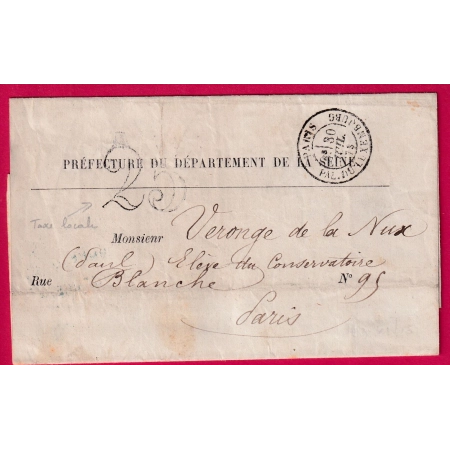 PARIS
PAL. DU LUXEMBOURG
30
PRÉFECTURE DU DÉPARTEMENT DE LA SEINE
25
Taxe locale
Monsieur Veronge de la Nux
(Paul) Elève du Conservatoire
Rue Blanche N° 95
Paris